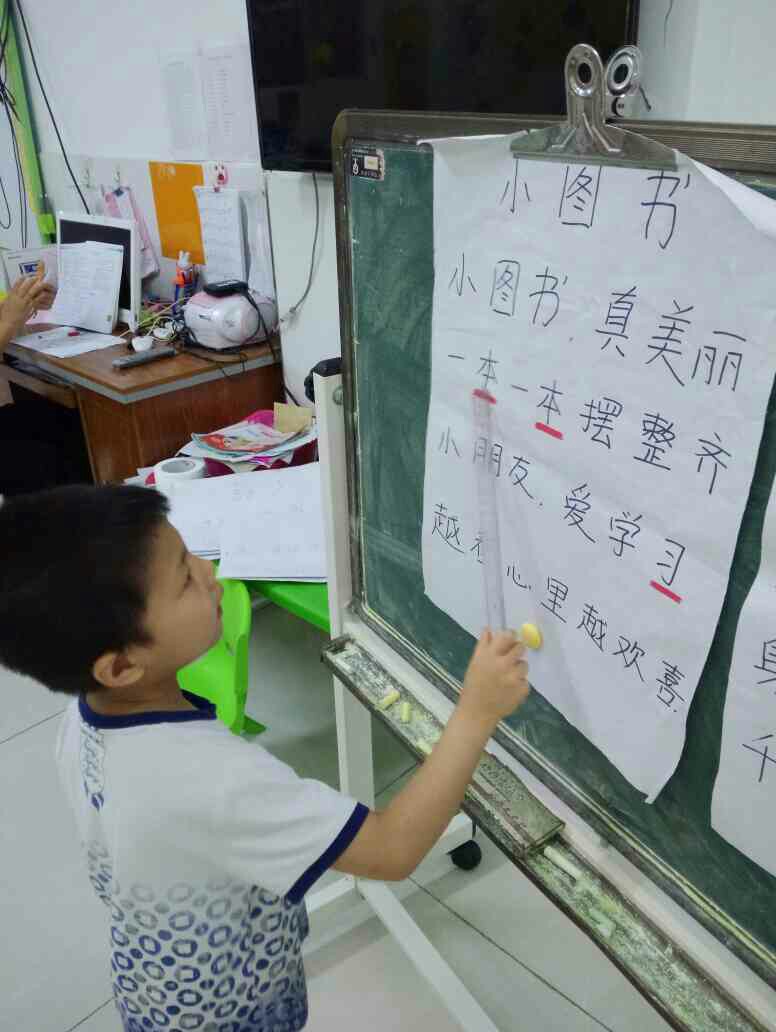 小图书
小图书,真美丽
一本一本摆整齐
小朋友,爱学习
越 心里越欢喜.
真
千